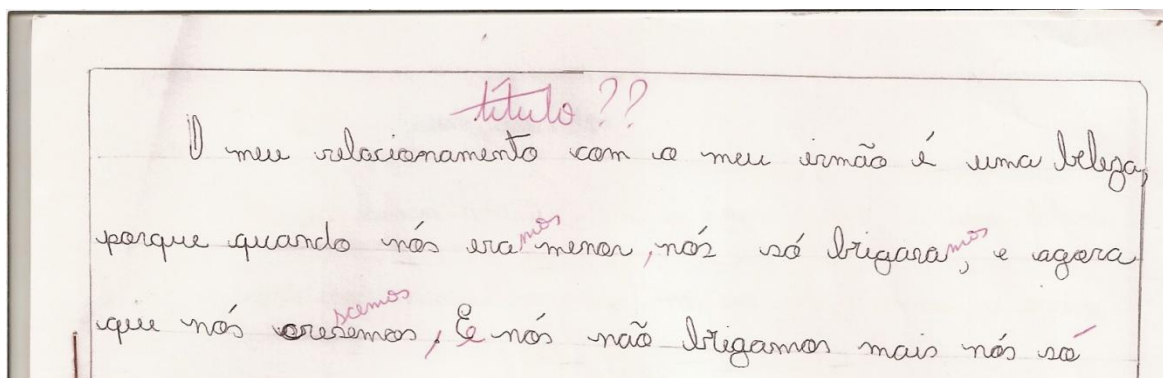 título ??
O meu relacionamento com o meu irmão é uma beleza,
porque quando nós eramos menor, nós só brigaramos, e agora
scemos
que nós cresemos, E nós não brigamos mais nós só